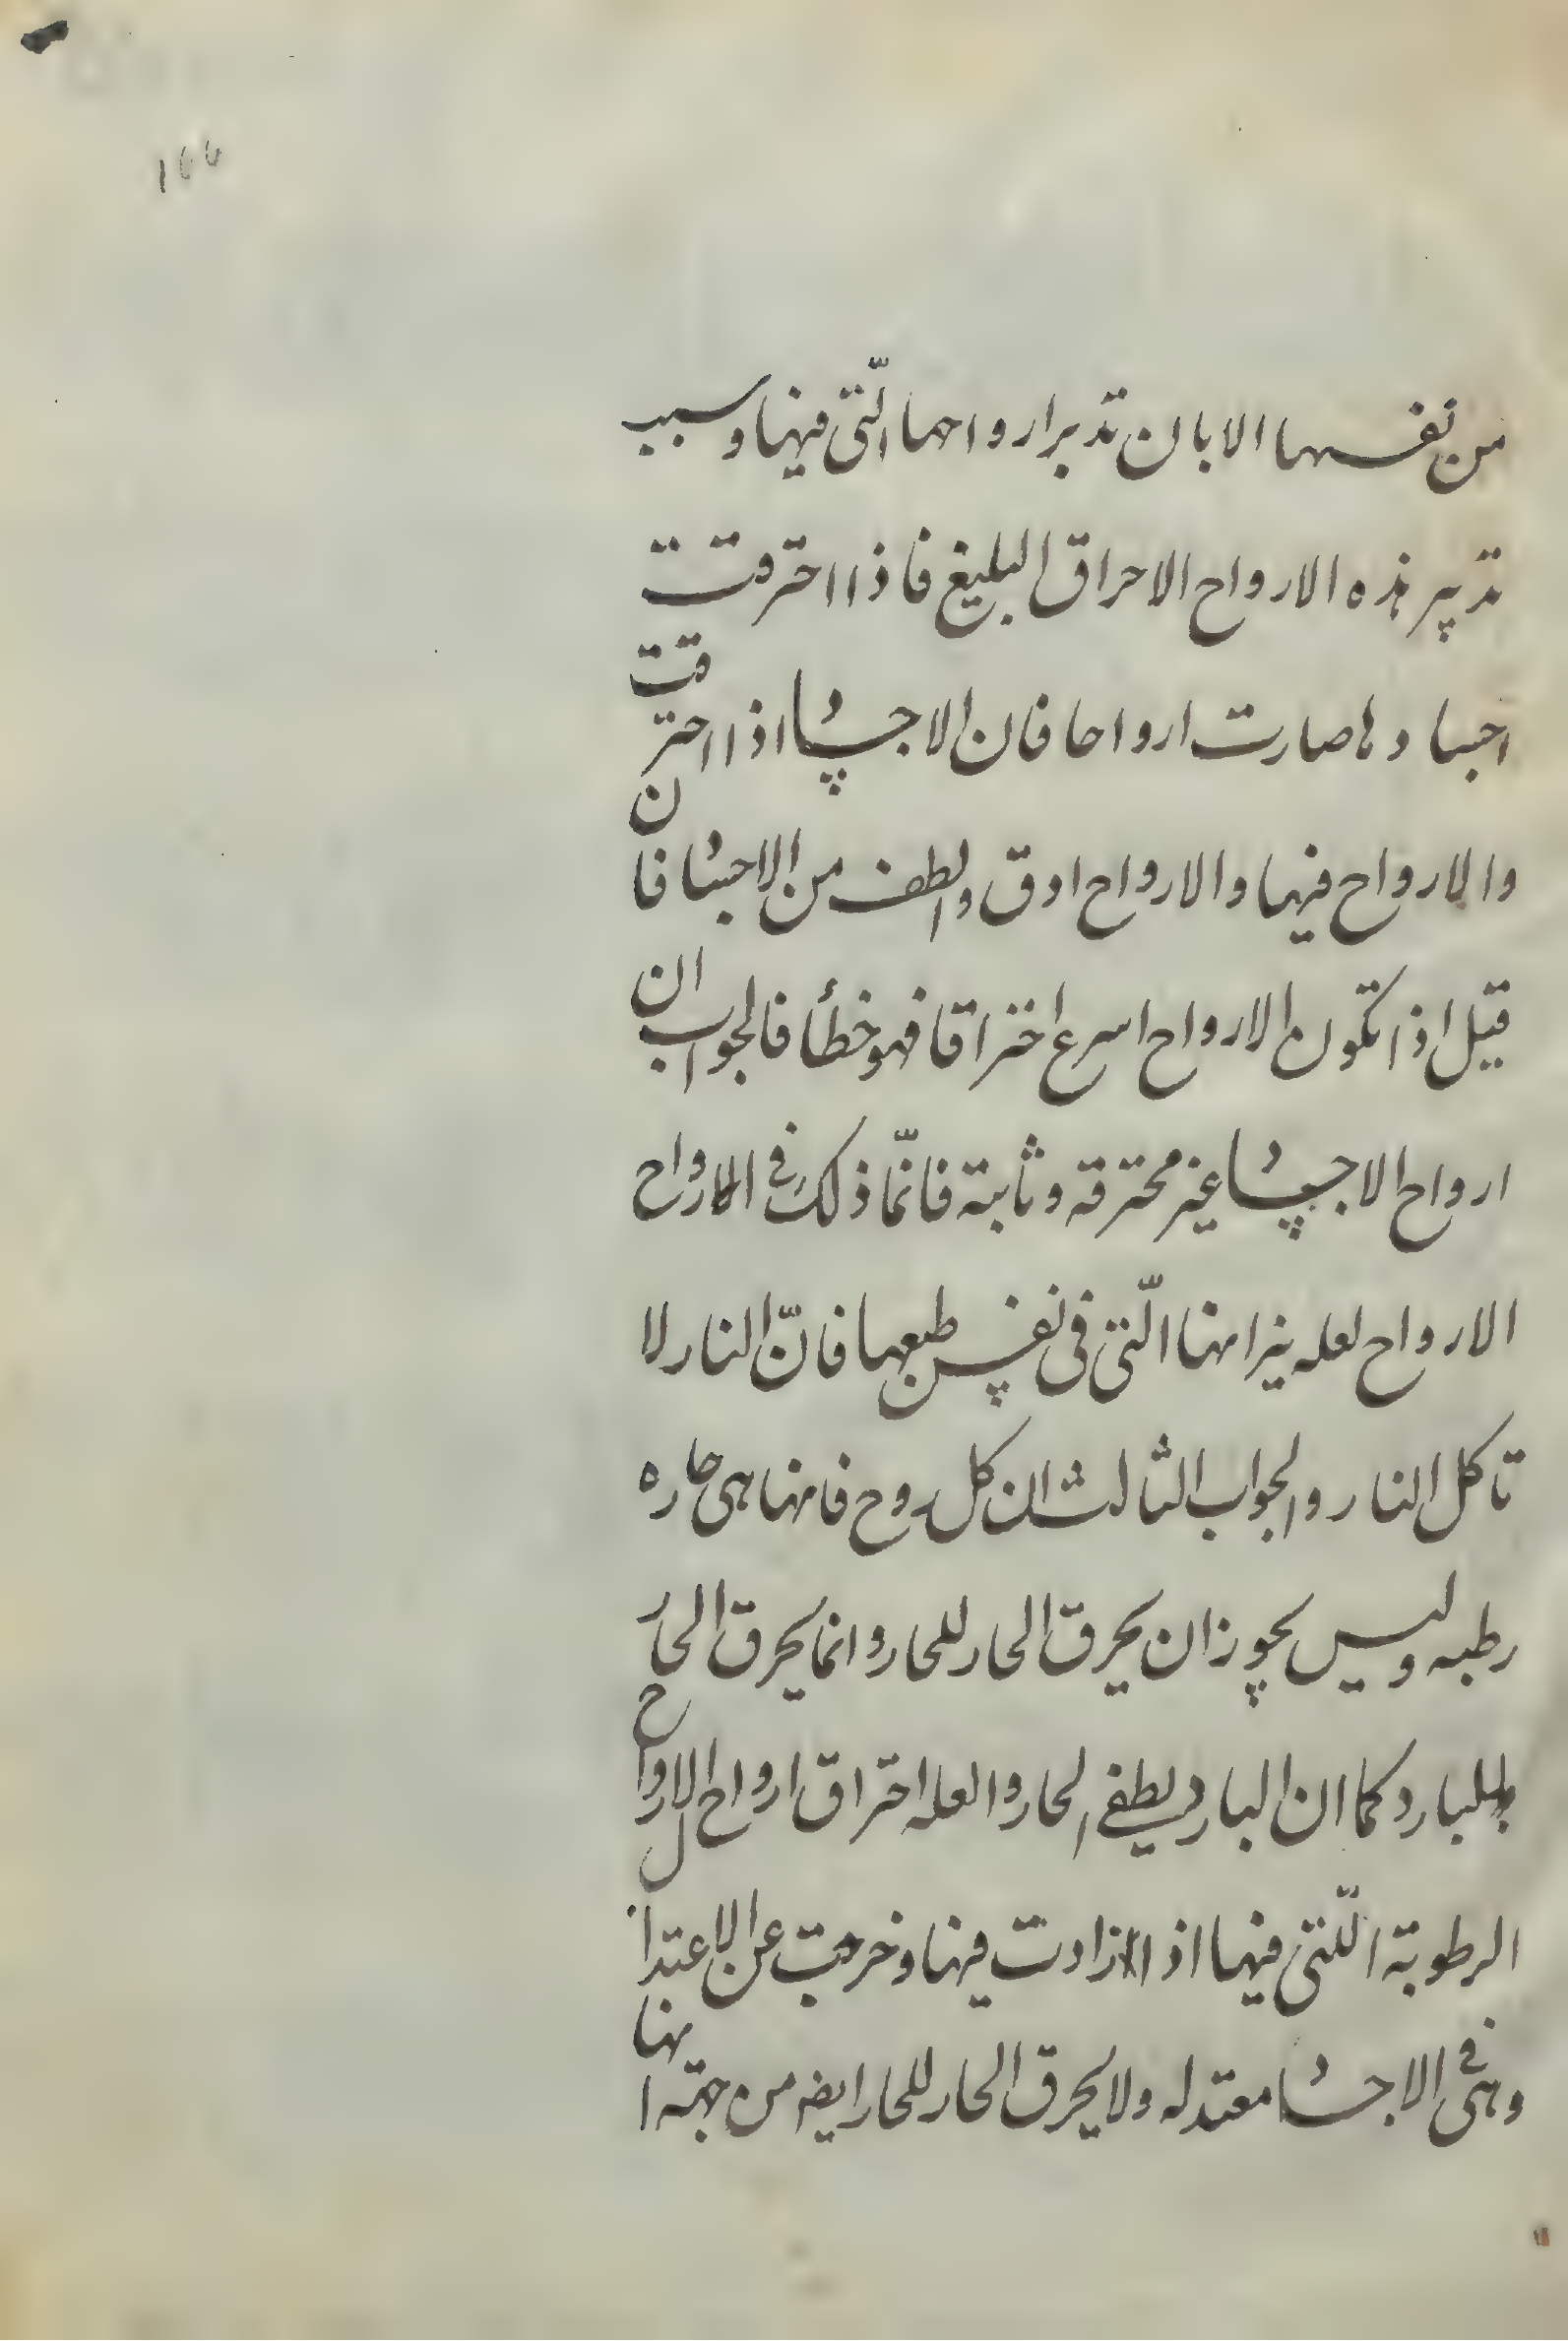 ١٤٤
من نفسها الا بان تدبر ارواحها الّتى فيها وسبب
تدبير هذه الارواح الاحراق البليغ فاذا احترقت
اجساد ها صارت ارواحا فان الاجساد اذا احترقت
والارواح فيها والارواح ادق والطف من الاجساد فان
قيل اذا تكون الارواح اسرع احتراقا فهو خطأ فالجواب ان
ارواح الاجساد غير محترقه وثابتة فانّما ذلك فى الارواح
الارواح لعله الّتى فى نفس طبعها فانّ النار لا
تاكل النار والجواب الثالث ان كل روح فانها هى حاره
رطبه وليس يجوز ان يحرق الحار للحار وانما يحرق الحار
للبارد كما ان البارد يطفى الحار والعله احتراق ارواح الارواح
الرطوبة اللّتى فيها اذا زادت فيها وخرجت عن الاعتدال
وهى فى الاجساد معتدله ولا يحرق الحار للحار ايضا من جهة انها